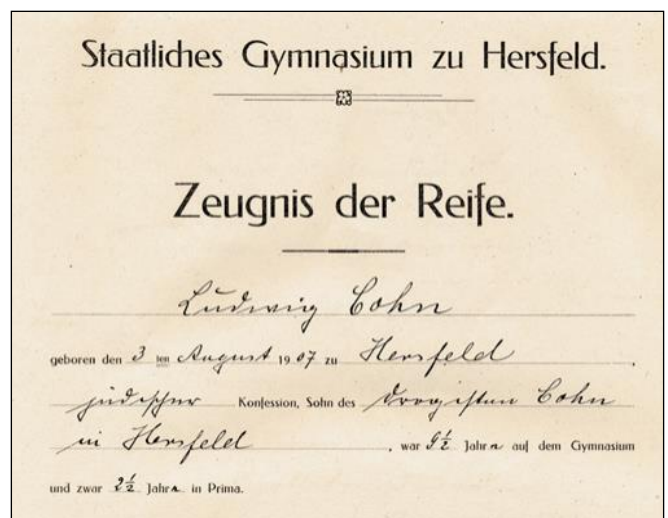 Staatliches Gymnasium zu Hersfeld.
Zeugnis der Reife.
Ludwig Cohn
geboren den 3 ten August 1907 zu Hersfeld,
jüdischer Konfession, Sohn des Drogisten Cohn
in Hersfeld, war 9½ Jahre auf dem Gymnasium
und zwar 2½ Jahre in Prima.